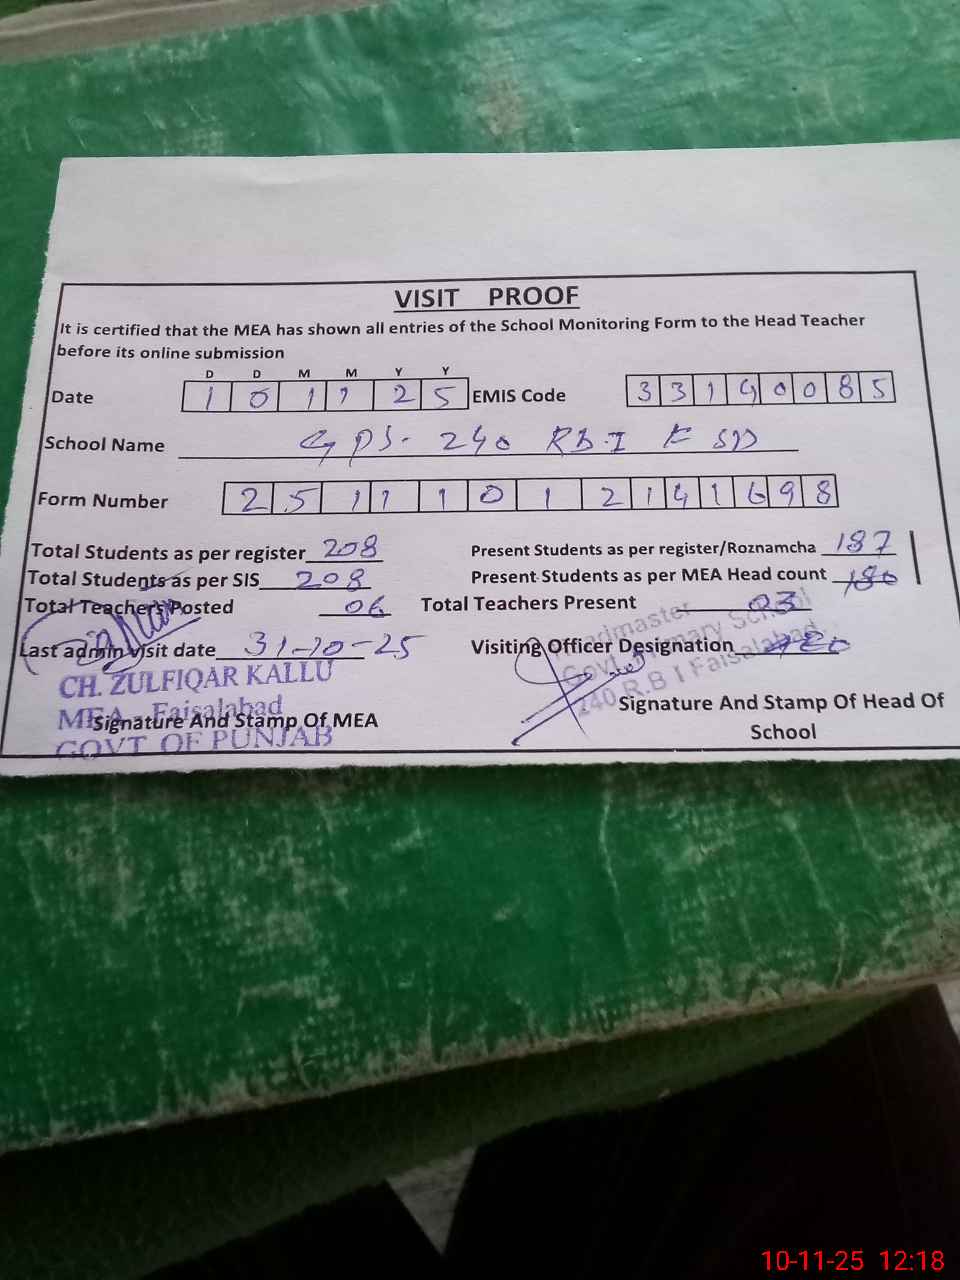 VISIT PROOF
It is certified that the MEA has shown all entries of the School Monitoring Form to the Head Teacher
before its online submission
D D M M Y Y
Date 1 0 1 1 2 5 EMIS Code 3 3 1 9 0 0 8 5
School Name GPS. 240 RB-I FSD
Form Number 2 5 1 1 1 0 1 2 1 4 1 6 9 8
Total Students as per register 208 Present Students as per register/Roznamcha 187
Total Students as per SIS 208 Present Students as per MEA Head count 180
Total Teachers Posted 06 Total Teachers Present 03
Last admin visit date 31-10-25 Visiting Officer Designation
Headmaster
Govt. Primary School
240 R.B I Faisalabad
CH. ZULFIQAR KALLU
MEA - Faisalabad
GOVT OF PUNJAB
Signature And Stamp Of MEA
Signature And Stamp Of Head Of
School
10-11-25 12:18